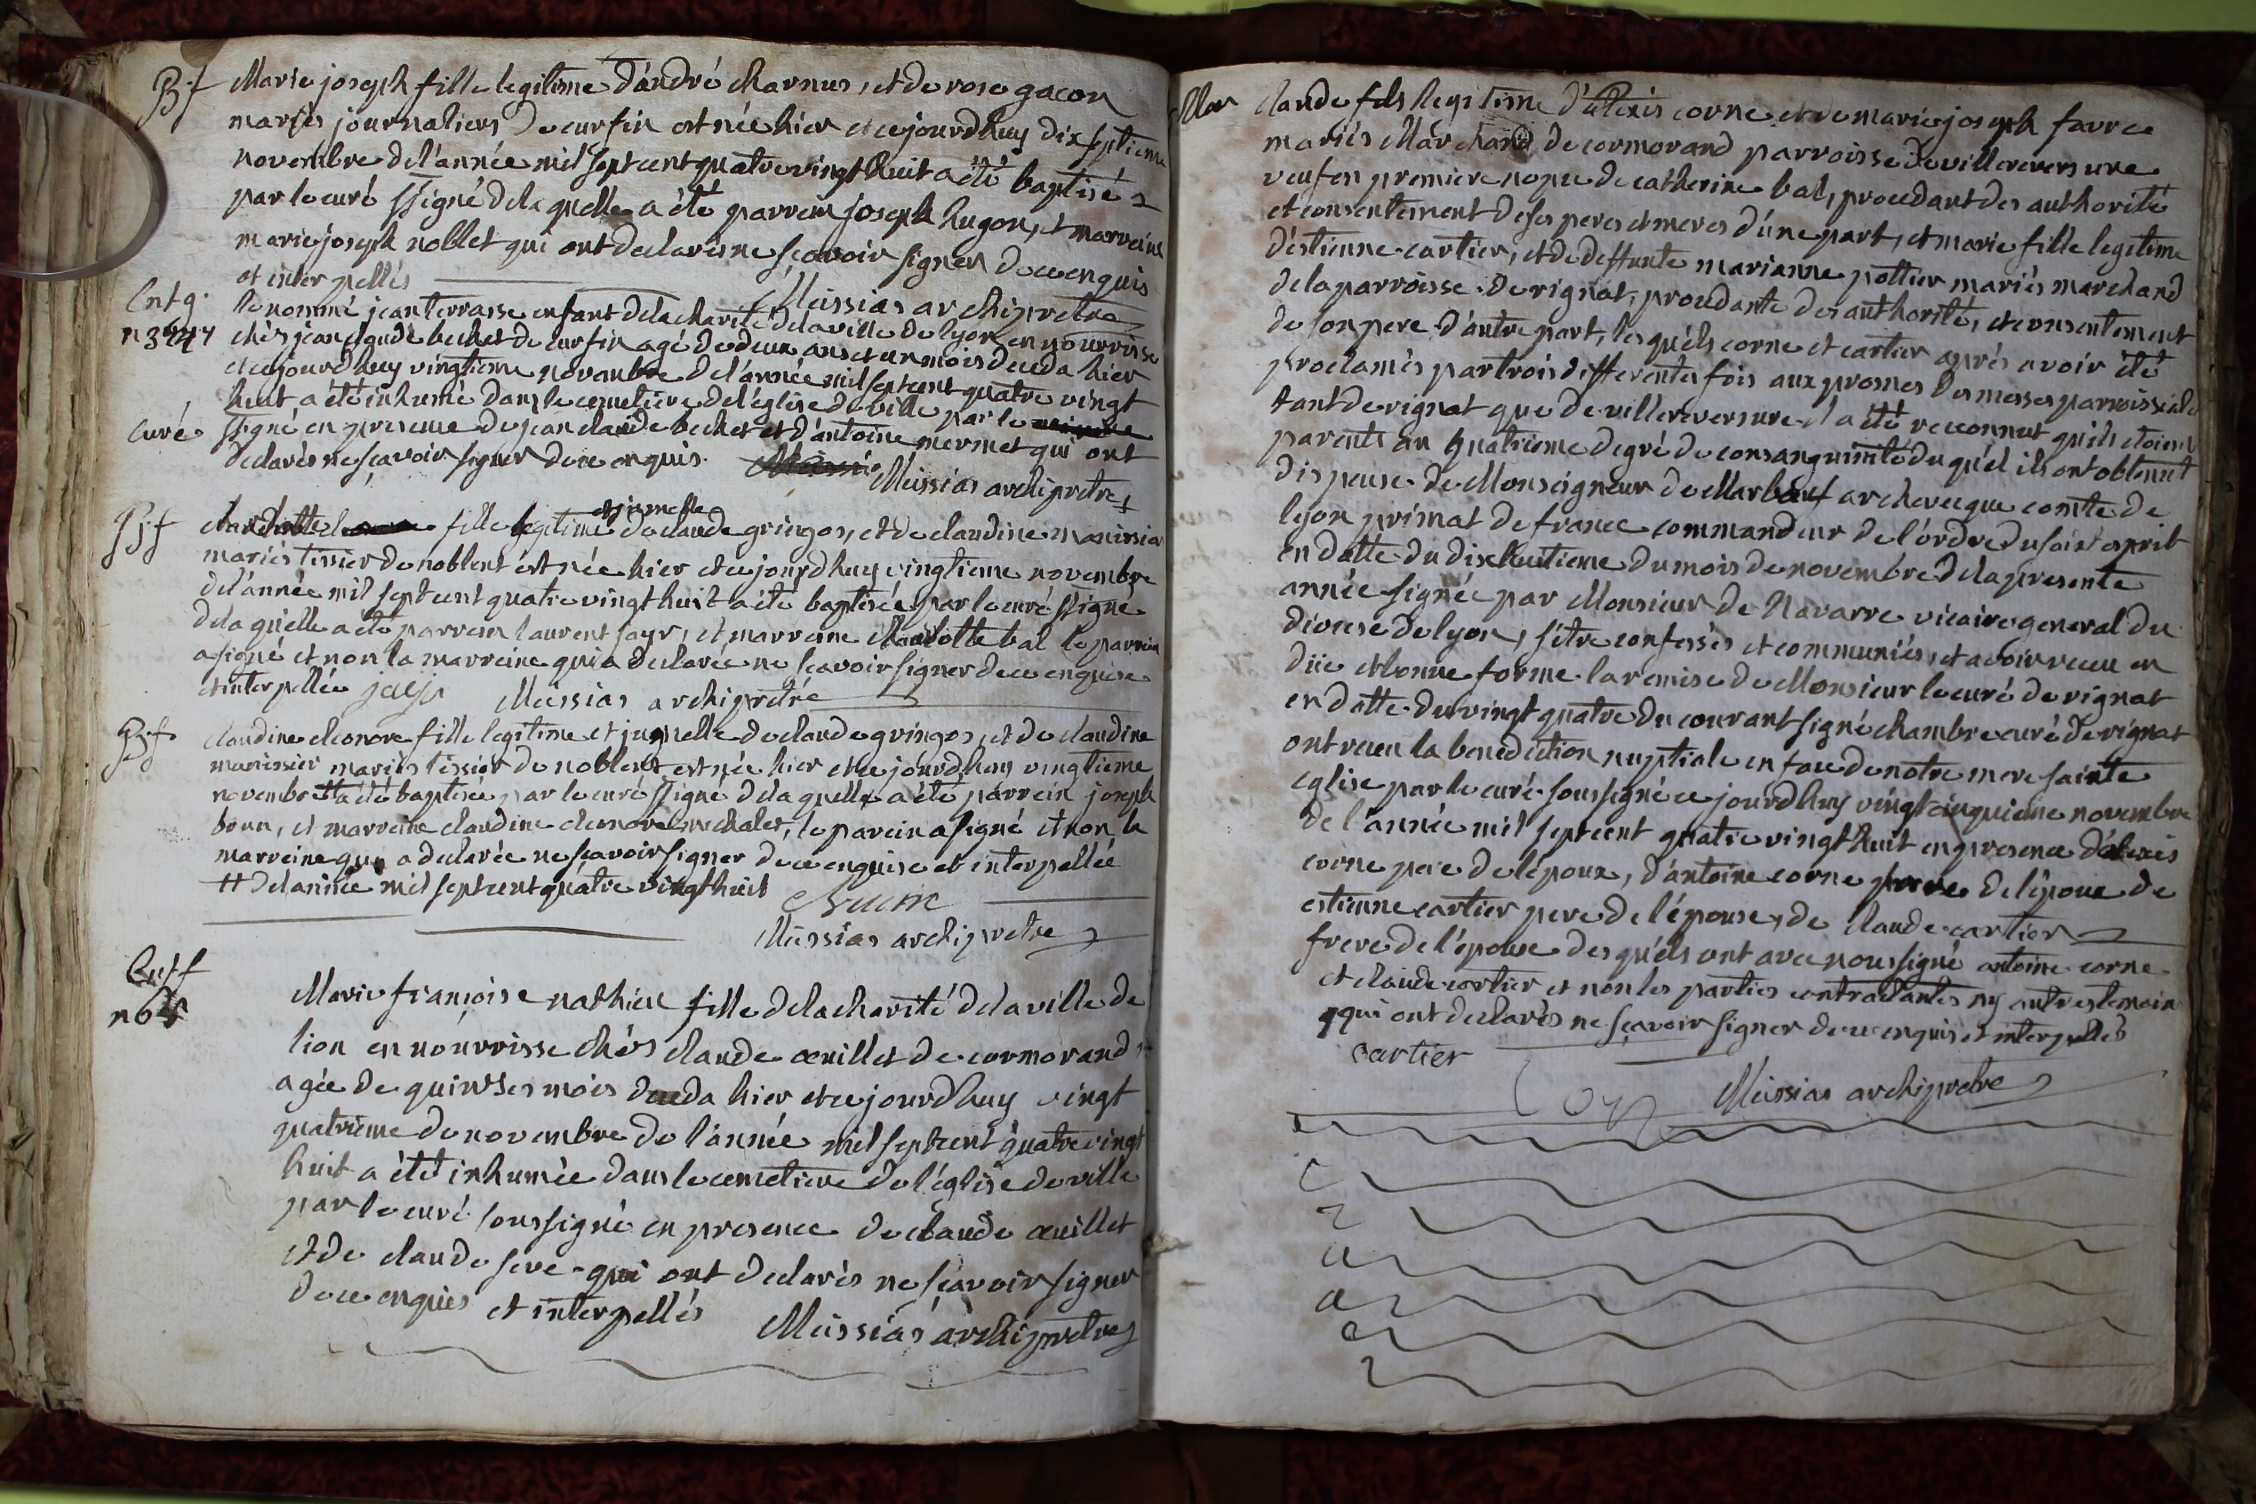 B·f Marie joseph fille legitime d'andré charnus, et de rose gacon
mariés journaliers de curfin est née hier et ce jourdhuy dix septieme
novembre de l'année mil sept cent quatre vingt huit a été baptisé
par le curé ssigné de la quelle a été parrein joseph hugon, et marreine
marie joseph noblet qui ont declarés ne sçavoir signer de ce enquis
et interpellés
Meissias archipretre
Ent g· le nommé jean terrasse enfant de la charité de la ville de lyon en nourrisse
chés jean claude bechet de curfin agé de deux ans et un mois deceda hier
et ce jourdhuy vingtieme novembre de l'année mil sept cent quatre vingt
huit a été inhumé dans le cemetiere de l'église de ville par le
curé ssigné en presence de jean claude bechet et d'antoine mermet qui ont
declarés ne sçavoir signer de ce enquis.
Meissias archipretre
B·f charlotte fille legitime et jumelle de claude gringos, et de claudine manissier
mariés tissier de noblent est née hier et ce jourdhuy vingtieme novembre
de l'année mil sept cent quatre vingt huit a été baptisée par le curé ssigné
de la quelle a été parrein laurent jayr, et marreine charlotte bal le parrein
a signé et non la marreine qui a declarée ne sçavoir signer de ce enquise
et interpellée jayr Meissias archipretre
B·f claudine eleonore fille legitime et jumelle de claude gringos, et de claudine
manissier mariés tissier de noblent est née hier et ce jourdhuy vingtieme
novembre # a été baptisée par le curé ssigné de la quelle a été parrein joseph
, et marreine claudine eleonore michalet, le parein a signé et non la
marreine qui a declarée ne sçavoir signer de ce enquise et interpellée
# de l'année mil sept cent quatre vingt huit
Meissias archipretre
Ent f
Marie françoise mathieu fille de la charité de la ville de
lion en nourrisse chés claude œuillet de cormorand
agée de quinses mois deceda hier et ce jourdhuy vingt
quatrieme de novembre de l'année mil sept cent quatre vingt
huit a été inhumée dans le cemetiere de l'église de ville
par le curé soussigné en presence de claude œuillet
et de claude seve qui ont declarés ne sçavoir signer
de ce enquis et interpellés Meissias archipretre
Mar claude fils legitime d'alexis corne et de marie joseph favre
mariés Marchand de cormorand parroisse de villereversure
veuf en premiere nopce de catherine bal, procedant des authorité
et consentement de ses peres et meres d'une part, et marie fille legitime
d'estienne cartier, et de deffunte marianne pottier mariés marchand
de la parroisse de rignat, procedante des authorité, et consentement
de son pere d'autre part, les quéls corne et cartier aprés avoir été
proclamés par trois differentes fois aux prosnes des messes parroissiales
tant de rignat que de villereversure il a été reconnut qu'ils étoient
parents au quatrieme degré de consanguinité du quél ils ont obtenut
dispense de Monseigneur de Marbeuf archeveque comte de
lyon primat de france commandeur de l'ordre du saint esprit
en datte du dixhuitieme du mois de novembre de la presente
année signée par Monsieur de Navarre vicaire general du
diocese de lyon, s'être confessés et communiés, et avoir receu en
düe et bonne forme la remise de Monsieur le curé de rignat
en datte du vingt quatre du courant signé chambre curé de rignat
ont receu la benediction nuptiale en face de notre mere sainte
eglise par le curé soussigné ce jourdhuy vingt cinquieme novembre
de l'année mil sept cent quatre vingt huit en presence d'alexis
corne pere de l'époux, d'antoine corne frere de l'époux de
estienne cartier pere de l'épouse, de claude cartier
frere de l'épouse des quéls ont avec nous signé antoine corne
et claude cartier et non les parties contractantes ny autres temoins
qui ont declarés ne sçavoir signer de ce enquis et interpellés
cartier
Meissias archipretre